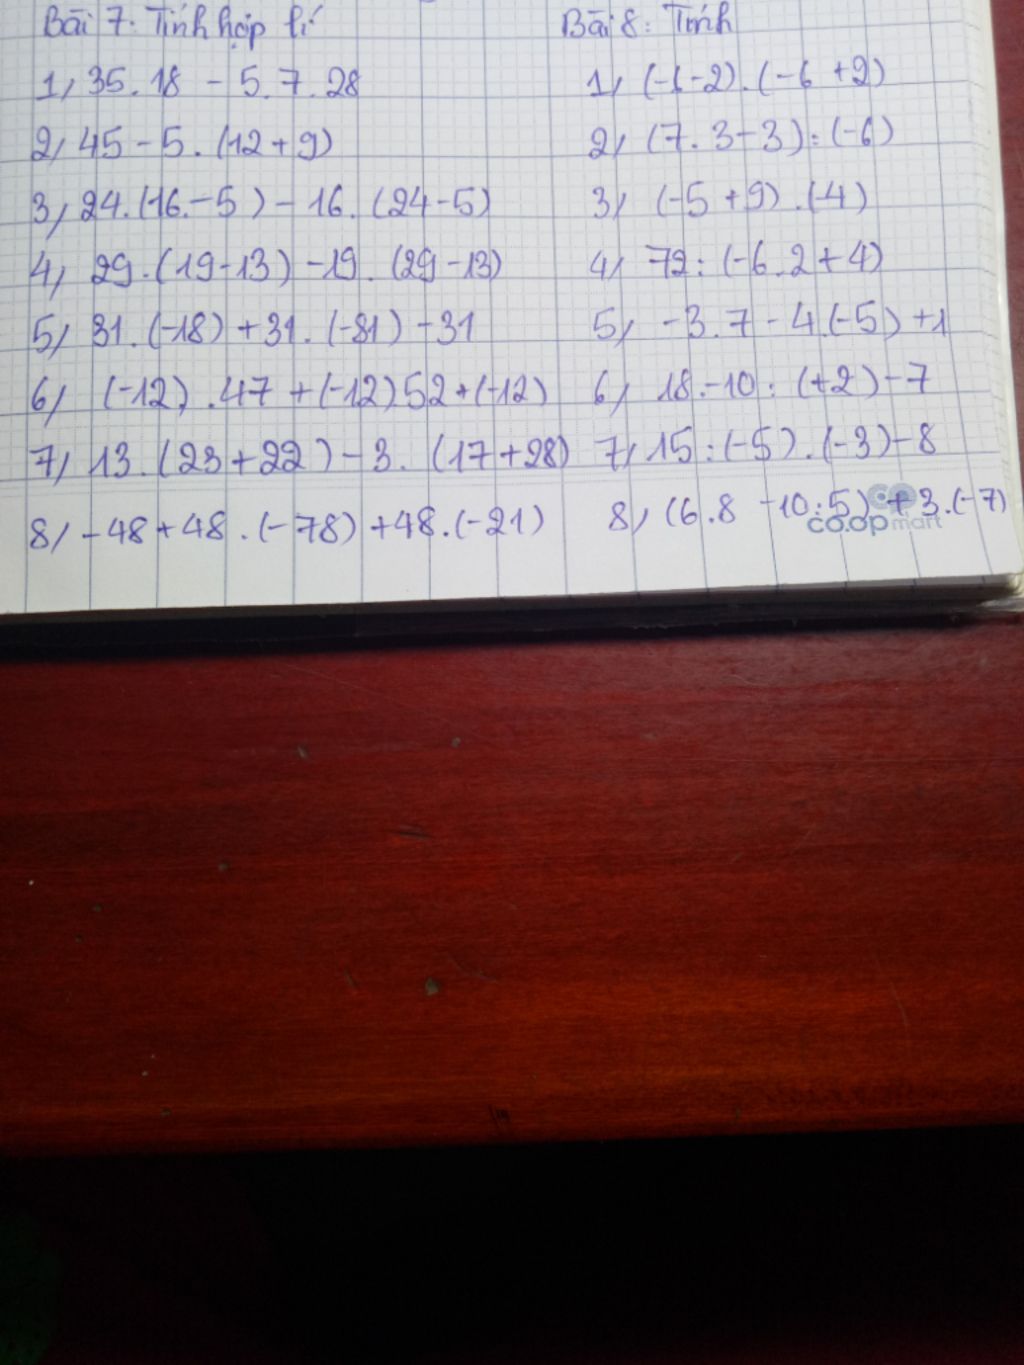 Bài 7: Tính hợp lí
1, 35.18 - 5.7.28
2, 45 - 5.(12+9)
3, 24.(16-5) - 16.(24-5)
4, 29.(19-13) - 19.(29-13)
5, 31.(-18) + 31.(-81) - 31
6, (-12).47 + (-12)52 + (-12)
7, 13.(23+22) - 3.(17+28)
8, -48 + 48.(-78) + 48.(-21)
Bài 8: Tính
1, (-6-2).(-6+2)
2, (7.3-3):(-6)
3, (-5+9).(-4)
4, 72:(-6.2+4)
5, -3.7 - 4.(-5) + 1
6, 18 - 10:(+2) - 7
7, 15:(-5).(-3) - 8
8, (6.8 - 10:5) + 3.(-7)
co.opmart